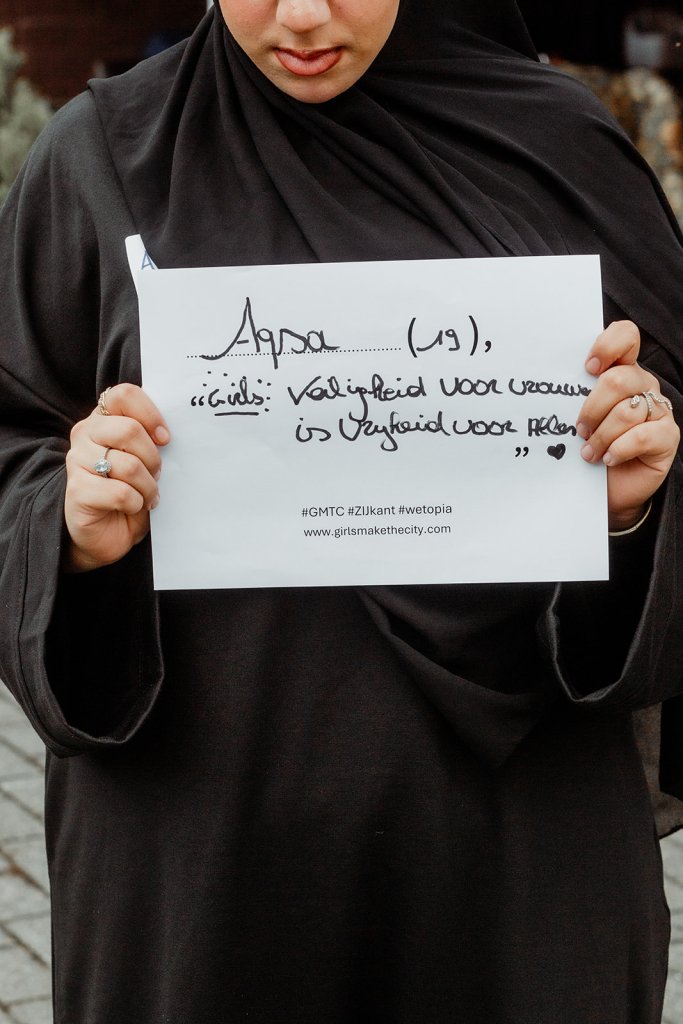 Aqsa (19),
"Girls: Veiligheid voor vrouwen
is Vrijheid voor Allen
" ♥
#GMTC #ZIJkant #wetopia
www.girlsmakethecity.com
A